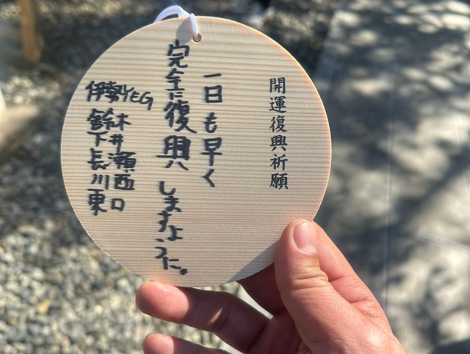 開運復興祈願
一日も早く
完全に復興しますように。
伊勢YEG
鈴木
下井
長瀬
川西
東口